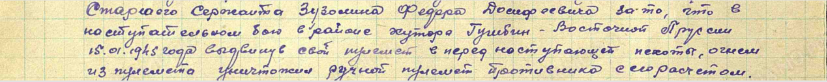 Старшего Сержанта Зузолина Федора Досифеевича за то, что в
наступательном бою в районе хутора Гумбин - Восточной Пруссии
15.01.1945 года выдвинув свой пулемет в перед наступающей пехоты, огнем
из пулемета уничтожил ручной пулемет противника с его расчетом.